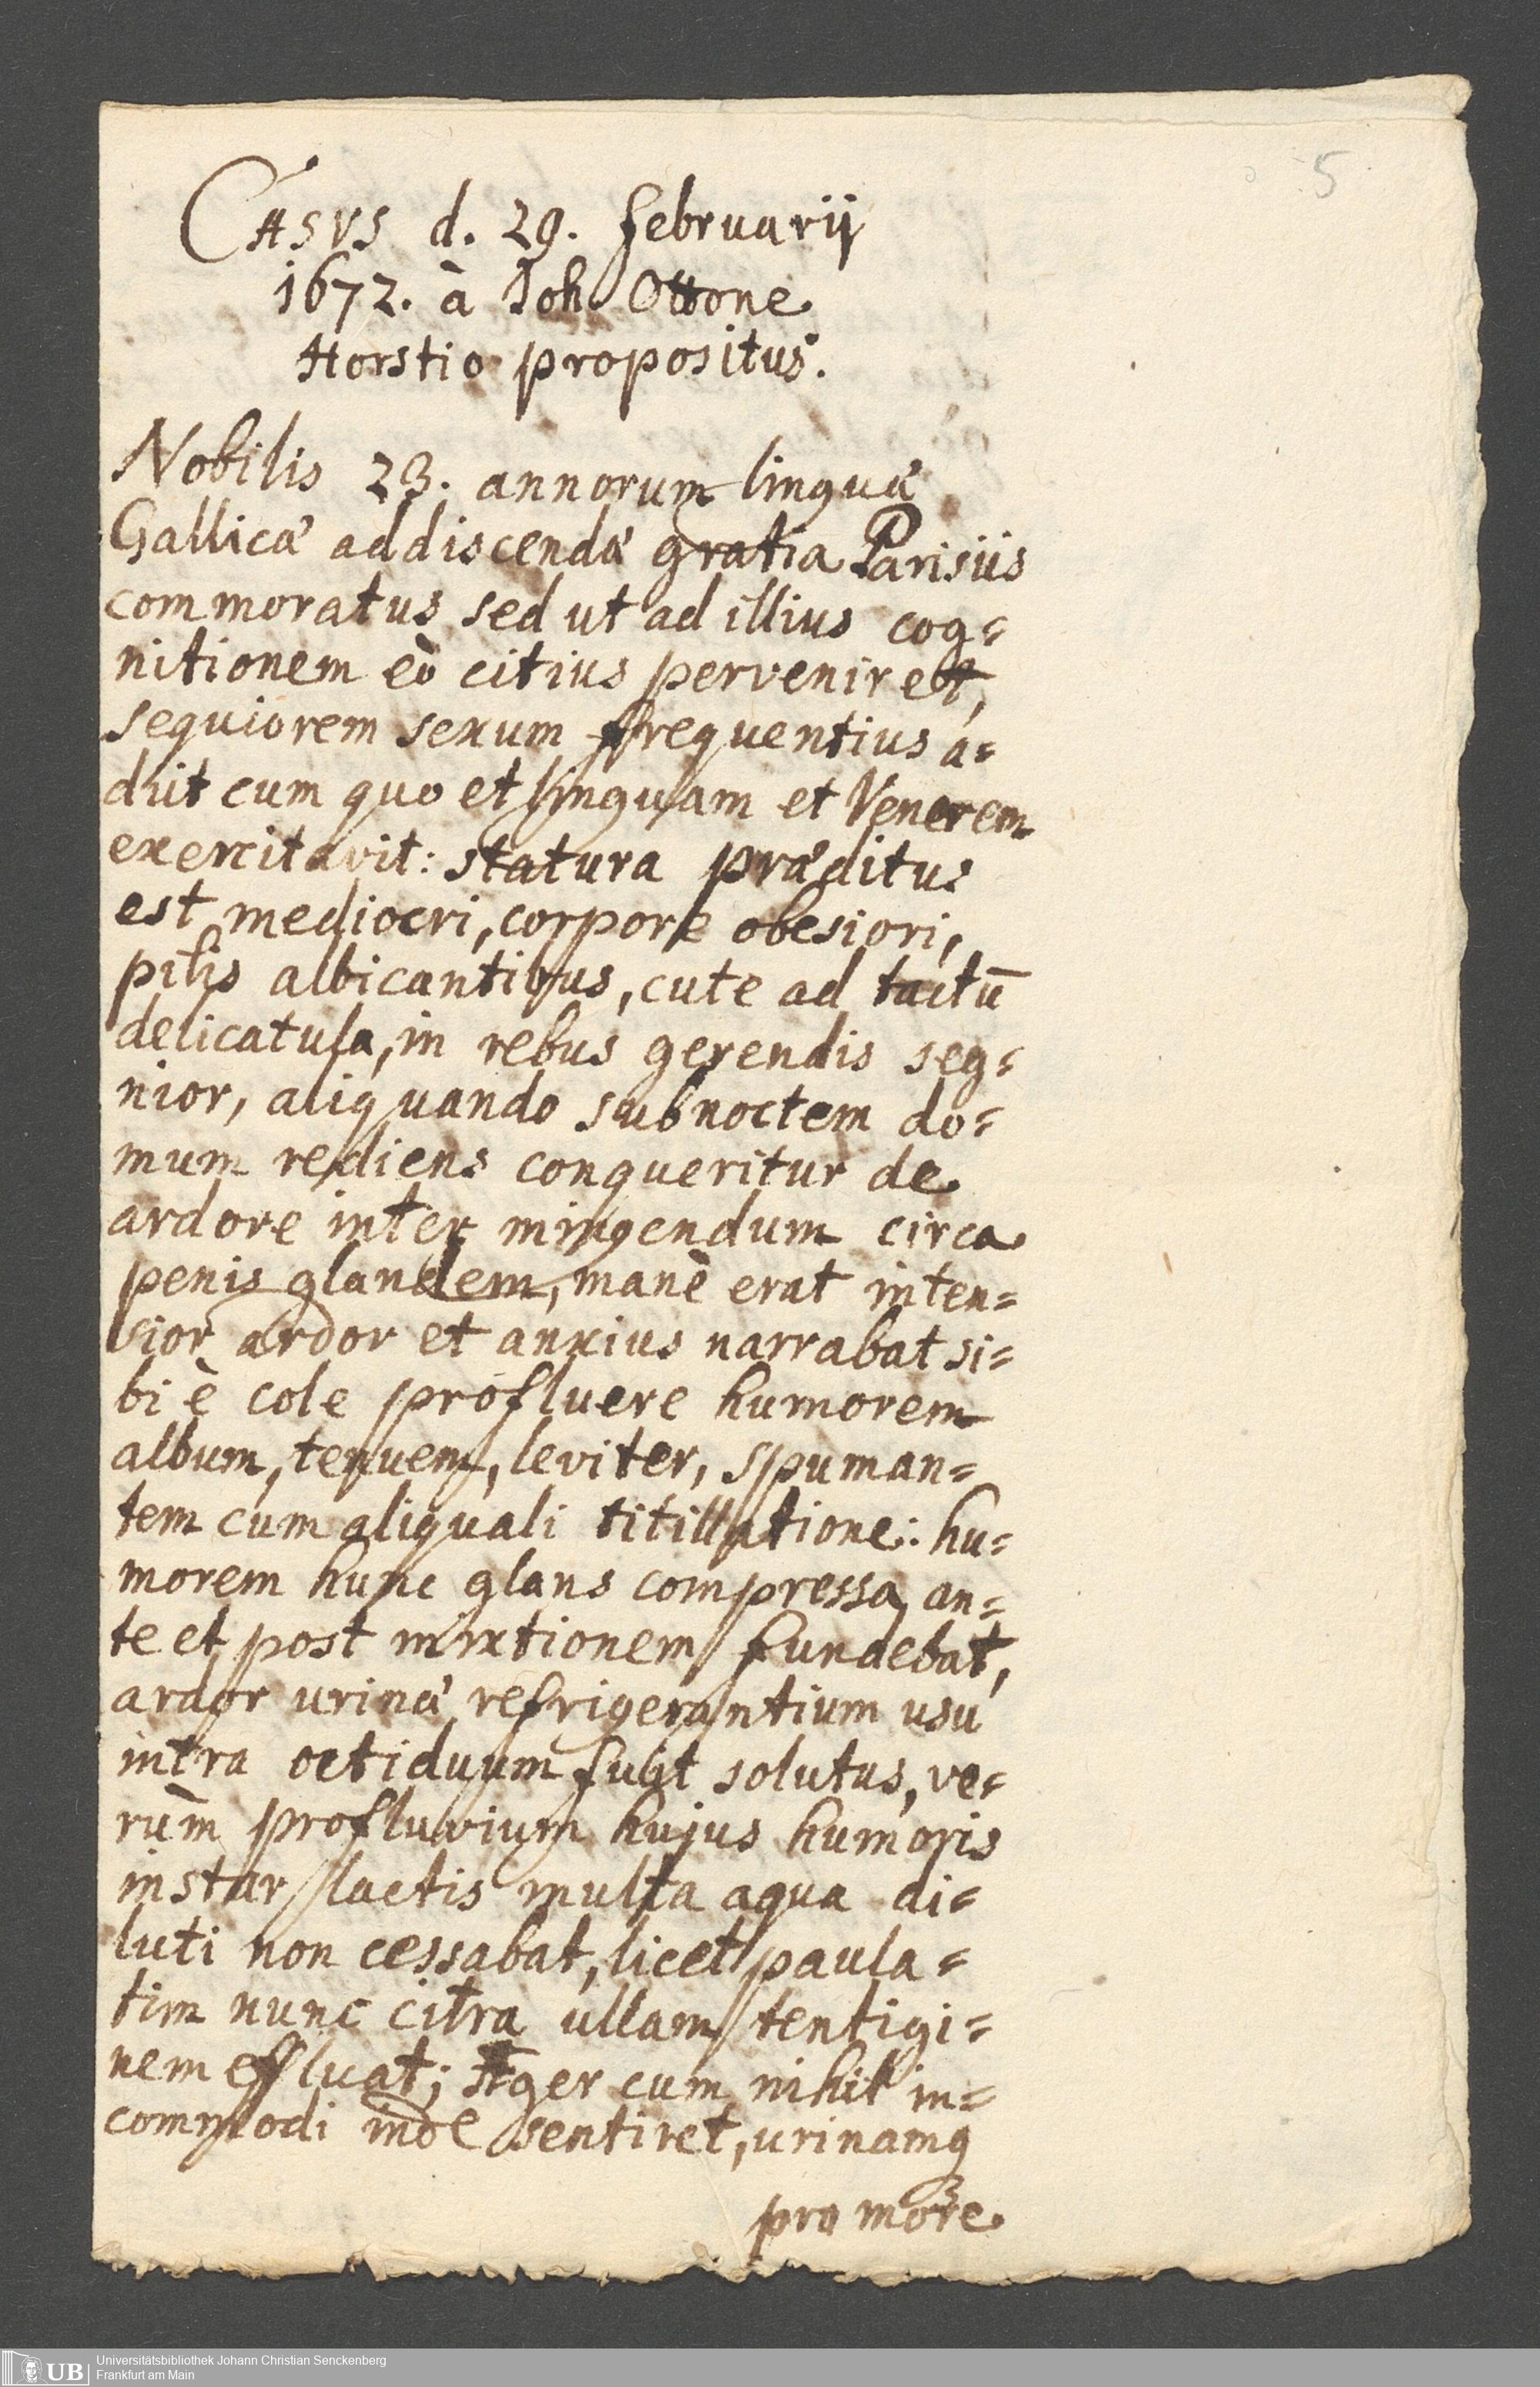 5
Casus d. 29. februarij
1672. à Joh. Ottone
Horstio propositus.
Nobilis 23. annorum linguæ
Gallicæ addiscendæ gratia Parisiis
commoratus sed ut ad illius cog=
nitionem eò citius perveniret,
sequiorem sexum frequentius a=
diit cum quo et linguam et Venerem
exercitavit: statura præditus
est mediocri, corpore obesiori,
pilis albicantibus, cute ad tactū
delicatula, in rebus gerendis seg=
nior, aliquando sub noctem do=
mum rediens conqueritur de
ardore inter mingendum circa
penis glandem, manè erat inten=
sior ardor et anxius narrabat si=
bi è cole profluere humorem
album, tenuem, leviter, spuman=
tem cum aliquali titillatione: hu=
morem hunc glans compressa, an=
te et post mixtionem fundebat,
ardor urinæ refrigerantium usu
intra octiduum fuit solutus, ve=
rùm profluvium hujus humoris
instar lactis multa aqua di=
luti non cessabat, licet paula=
tim nunc citra ullam tentigi=
nem effluat; Æger cum nihil in=
commodi inde sentiret, urinamq3
pro more
UB
Universitätsbibliothek Johann Christian Senckenberg
Frankfurt am Main